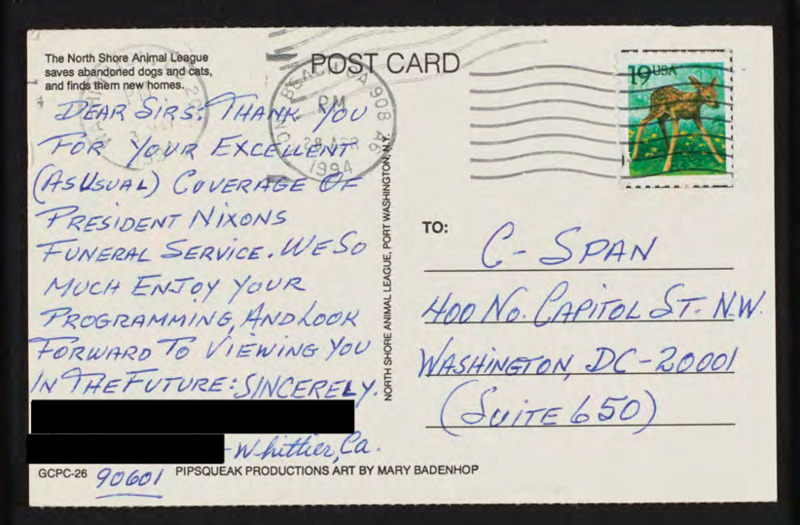 The North Shore Animal League
saves abandoned dogs and cats,
and finds them new homes.
POST CARD
LONG BEACH CA 908 A6
PM
28 APR
1994
19 USA
DEAR SIRS: THANK YOU
FOR YOUR EXCELLENT
(AS USUAL) COVERAGE OF
PRESIDENT NIXONS
FUNERAL SERVICE. WE SO
MUCH ENJOY YOUR
PROGRAMMING, AND LOOK
FORWARD TO VIEWING YOU
IN THE FUTURE: SINCERELY.
-Whittier, Ca.
90601
NORTH SHORE ANIMAL LEAGUE, PORT WASHINGTON, N.Y.
TO:
C-SPAN
400 NO. CAPITOL ST. N.W.
WASHINGTON, DC-20001
(SUITE 650)
GCPC-26
PIPSQUEAK PRODUCTIONS ART BY MARY BADENHOP